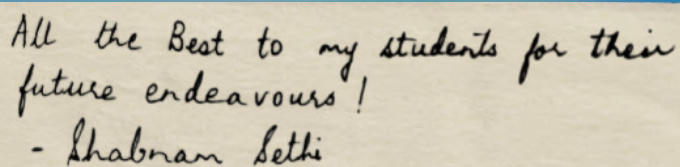 All the Best to my students for their
future endeavours!
- Shabnam Sethi